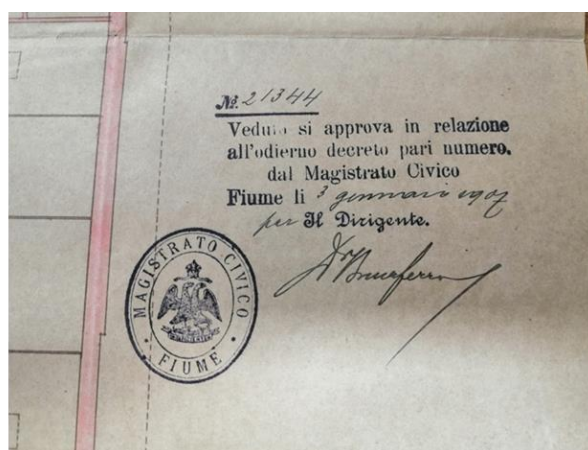 №. 21344
Veduto si approva in relazione
all'odierno decreto pari numero.
dal Magistrato Civico
Fiume li 3 gennaio 1907
per Il Dirigente.
MAGISTRATO CIVICO
FIUME